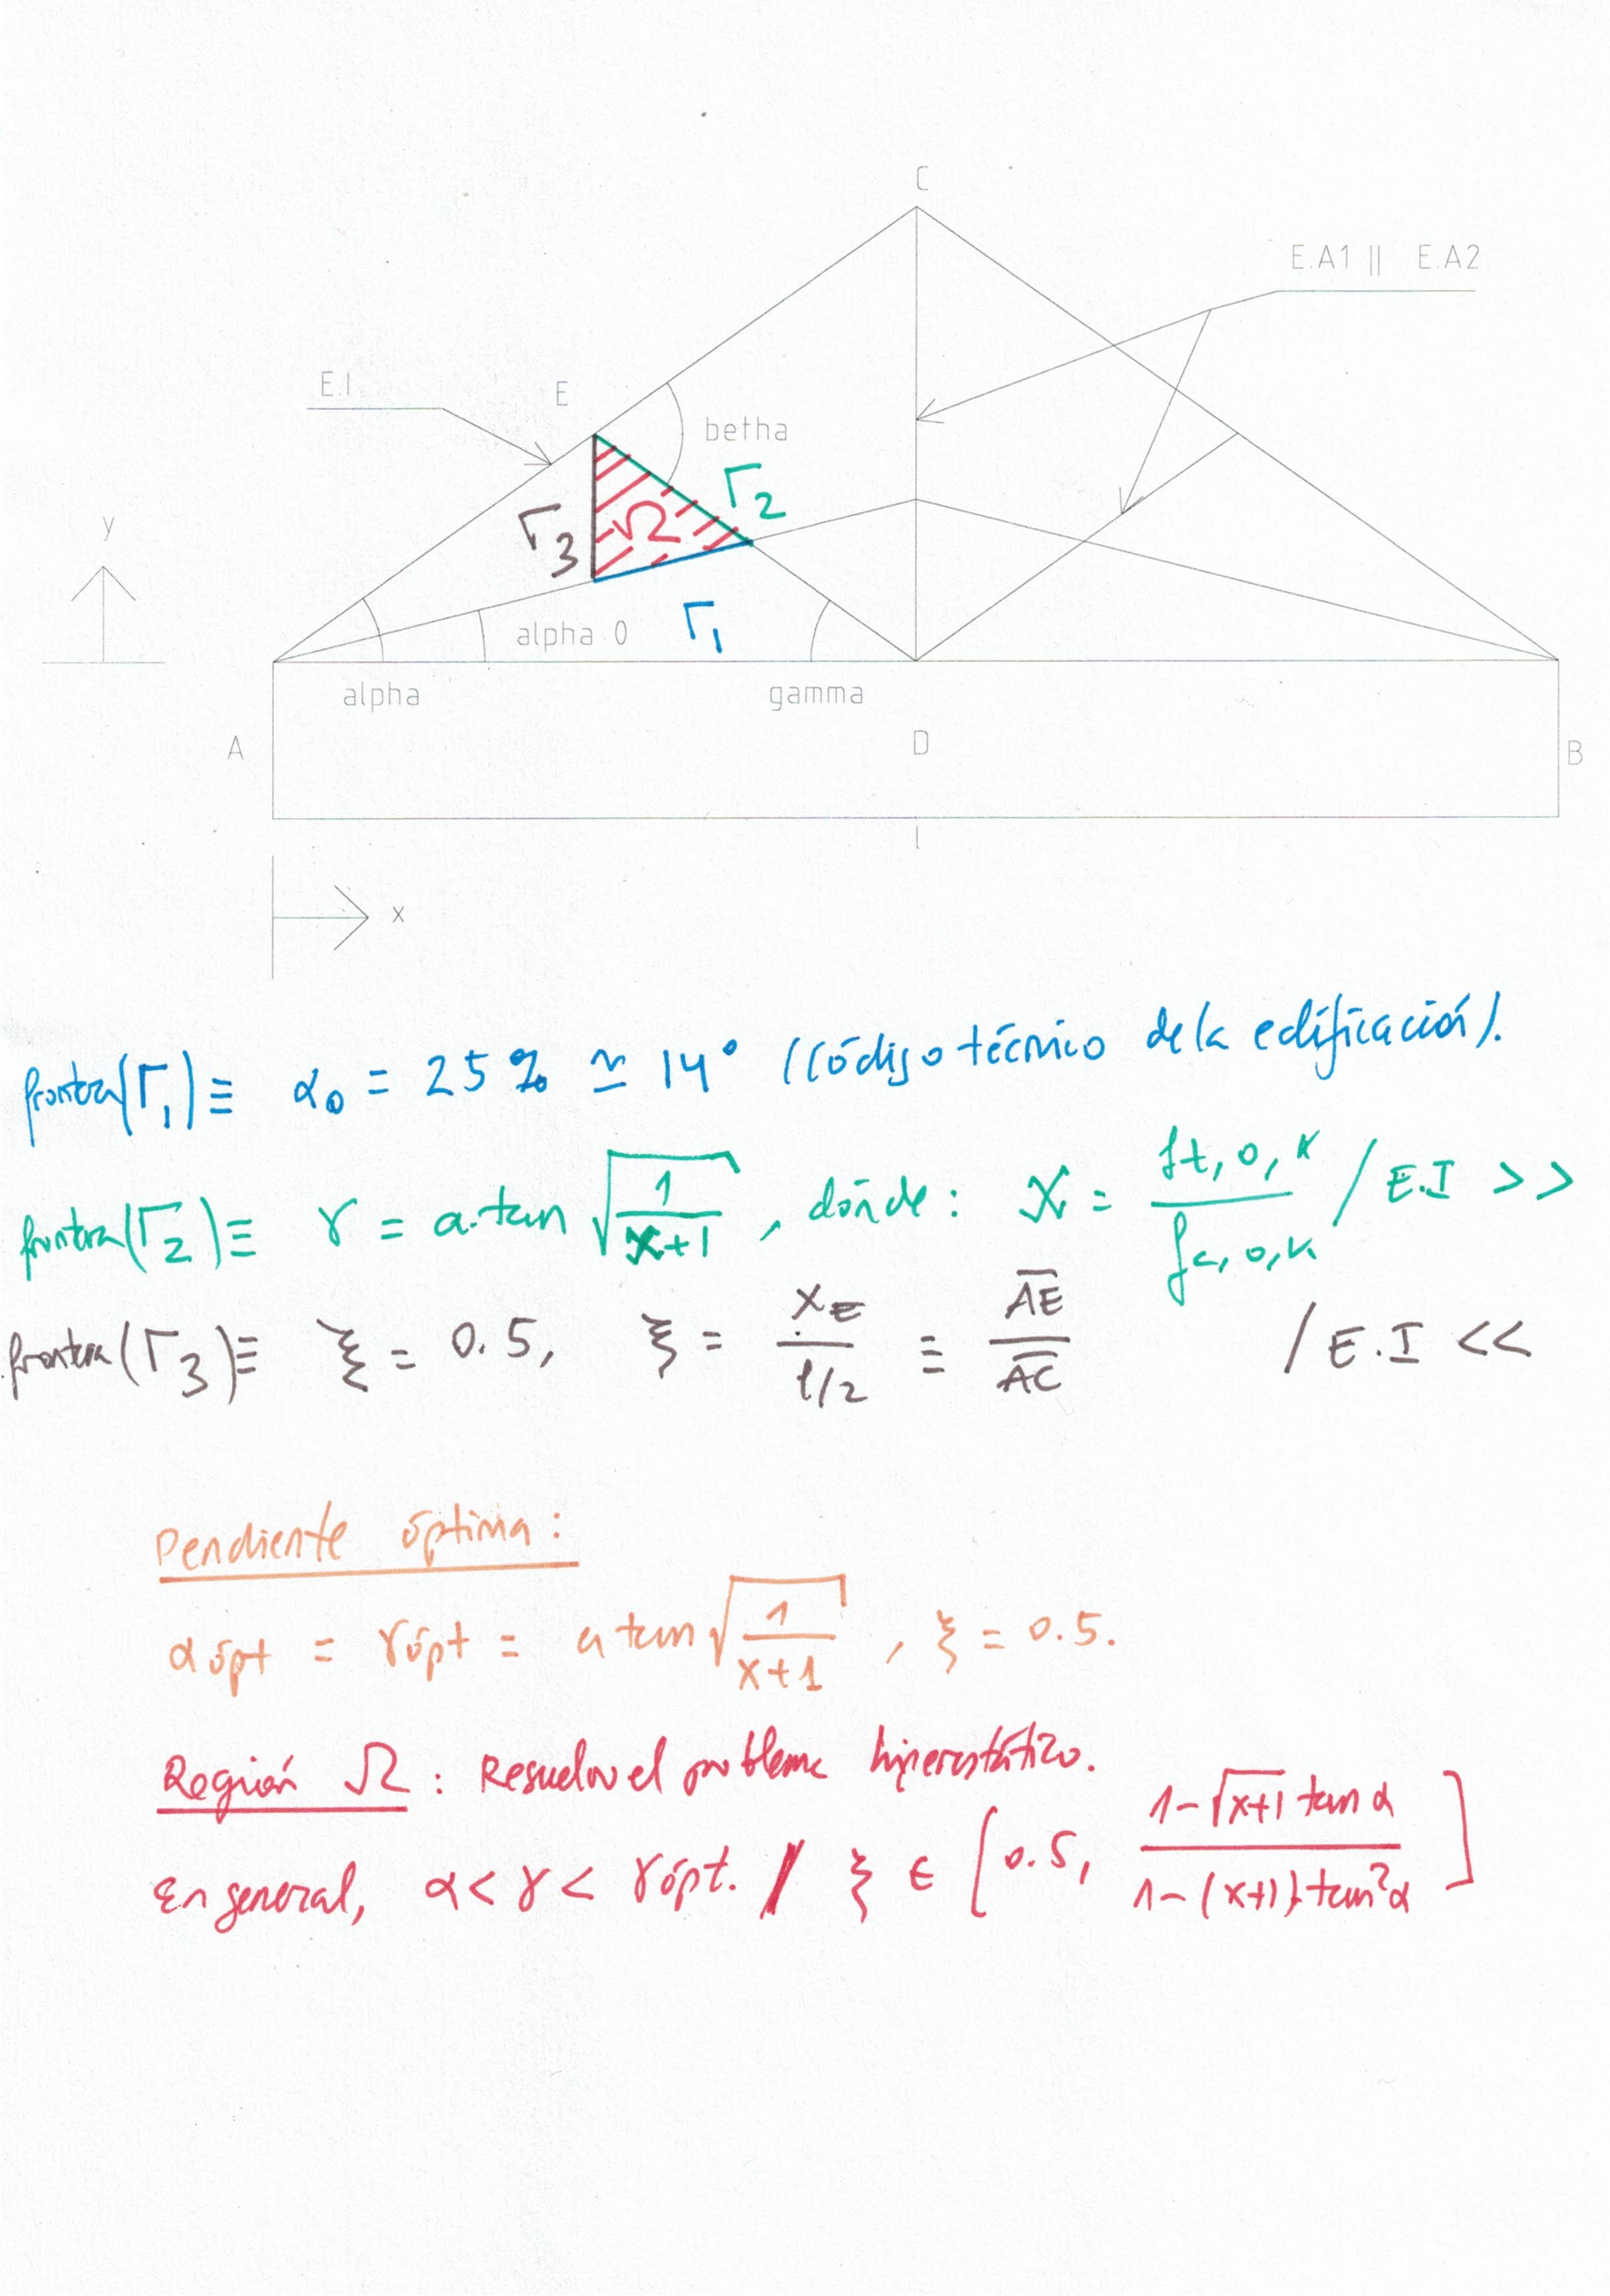 C
E.A1 || E.A2
E.I
E
betha
Γ2
Γ3
Ω
y
alpha 0
Γ1
alpha
gamma
A
D
B
l
x
frontera(Γ1)≡ α0 = 25% ≃ 14° (Código técnico de la edificación).
frontera(Γ2)≡ γ = a.tan √(1/(χ+1)), dónde: χ = ft,0,k / fc,0,k / E.I >>
frontera(Γ3)≡ ξ = 0.5, ξ = xE / l/2 ≡ AE / AC / E.I <<
Pendiente óptima:
αópt = γópt = atan √(1/(χ+1)), ξ = 0.5.
Región Ω: Resuelvo el problema hiperestático.
En general, α < γ < γópt. / ξ ∈ [0.5, (1-√(χ+1) tan α) / (1-(χ+1).tan²α)]